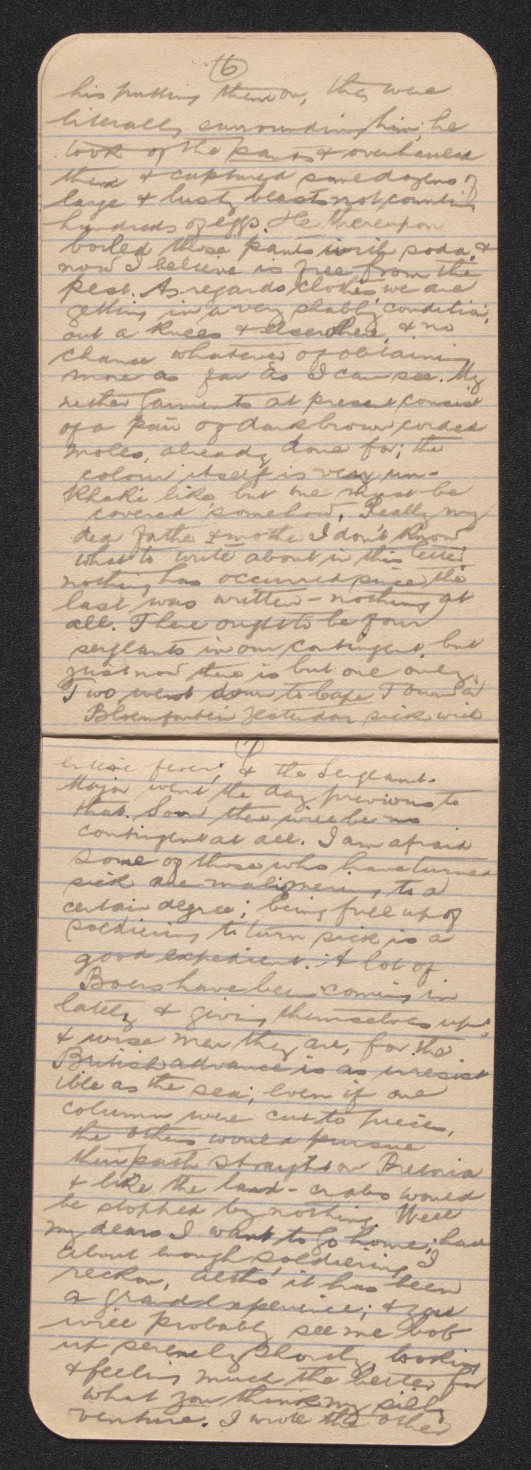 6
his putting them on, they were
literally surrounding him, he
took of the pants & overhauled
them & captured some dozens of
large & lusty beasts not counting
hundreds of eggs. He thereupon
boiled those pants with soda &
now I believe is free from the
pest. As regards clothes we are
getting in a very shabby condition,
out a knees & elsewhere, & no
chance whatever of obtaining
more as far as I can see. My
nether garments at present consist
of a pair of dark brown corded
moles, already done for; the
colour itself is very un-
Khaki like, but one must be
covered somehow. Really my
dear father & mother I don't know
what to write about in this letter
nothing has occurred since the
last was written - nothing at
all. There ought to be four
sergeants in our contingent, but
just now there is but one only.
Two went down to Cape Town
Bloemfontein yesterday sick with
7
enteric fever, & the Sergeant
Major went the day previous to
that. Soon there will be no
contingent at all. I am afraid
some of those who have turned
sick are malingering to a
certain degree; being full up of
soldiering to turn sick is a
good expedient. A lot of
Boers have been coming in
lately & giving themselves up
& wise men they are, for the
British advance is as irresist
ible as the sea; even if one
column were cut to pieces,
the others would pursue
their path straight on Pretoria
& like the land-crabs would
be stopped by nothing. Well
my dears I want to go home; had
about enough soldiering I
reckon, altho' it has been
a grand experience; & you
will probably see me bob
up serenely shortly, looking
& feeling much the better for
what you think my silly
venture. I wrote the other